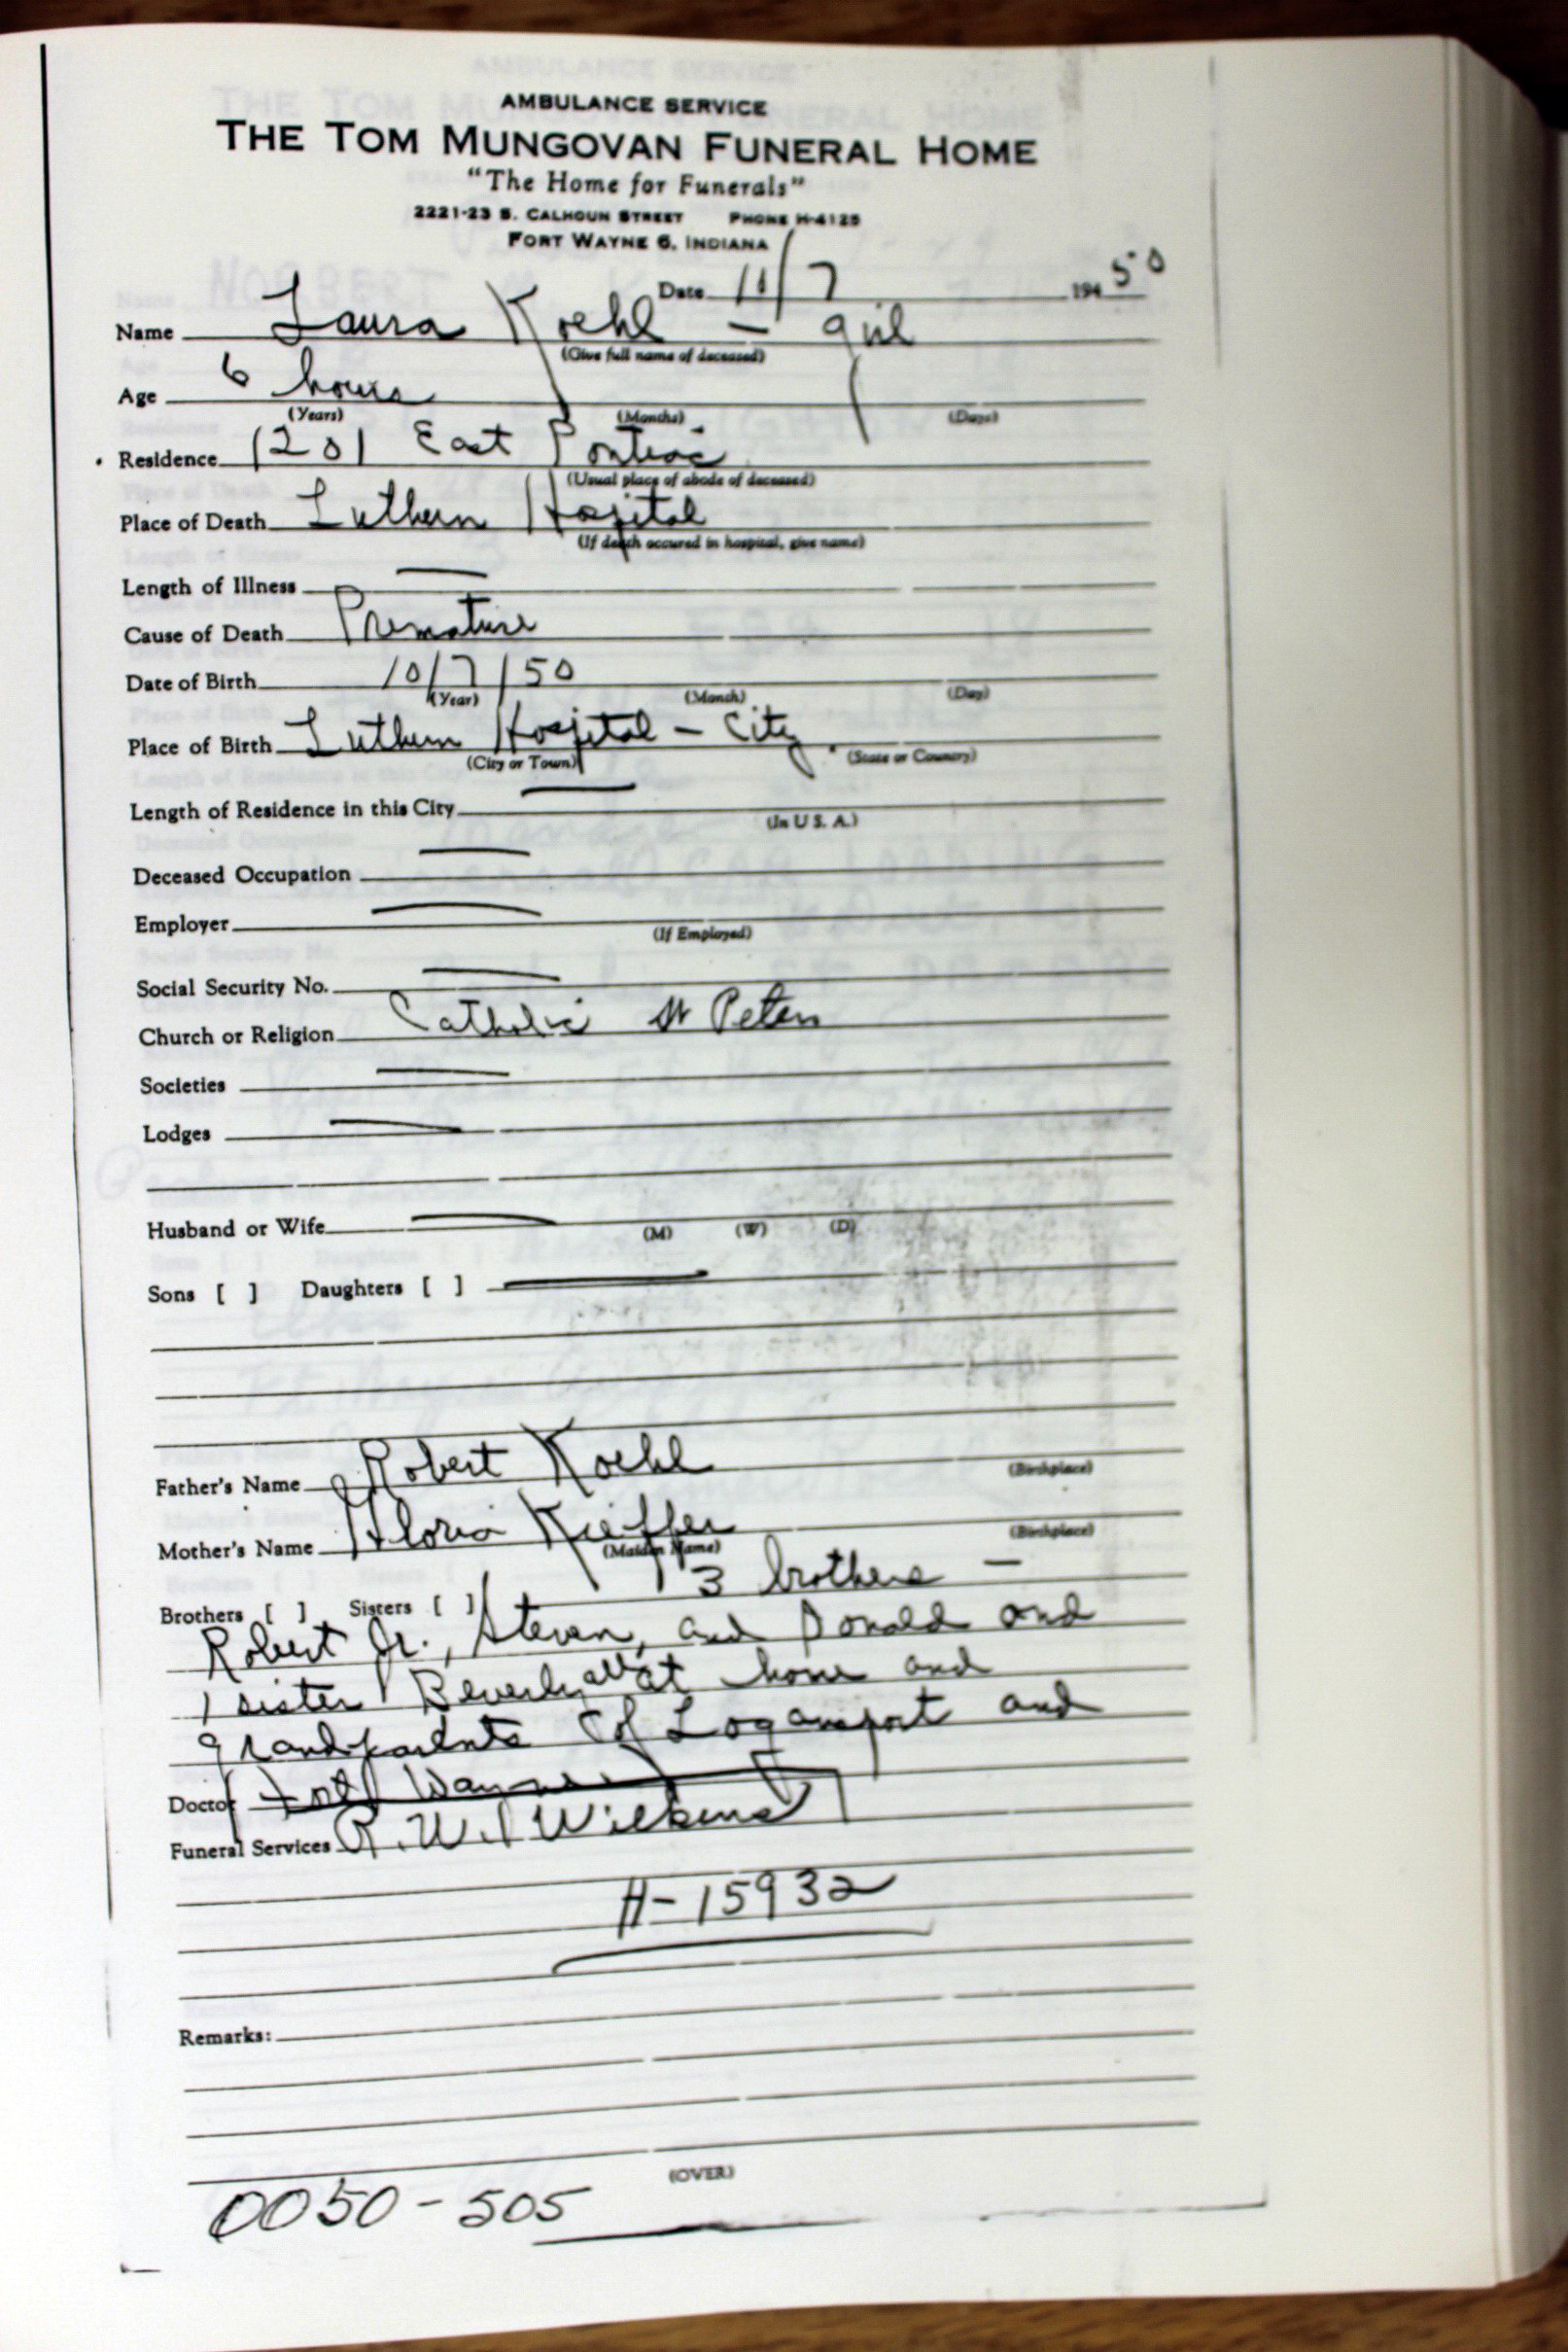 AMBULANCE SERVICE
THE TOM MUNGOVAN FUNERAL HOME
"The Home for Funerals"
2221-23 S. CALHOUN STREET PHONE H-4125
FORT WAYNE 6, INDIANA
Date 11/7 194 50
Name Laura Koehl - girl
(Give full name of deceased)
Age 6 hours
(Years) (Months) (Days)
Residence 1201 East Pontiac
(Usual place of abode of deceased)
Place of Death Luthern Hospital
(If death occured in hospital, give name)
Length of Illness —
Cause of Death Premature
Date of Birth 10/7/50
(Year) (Month) (Day)
Place of Birth Luthern Hospital - City
(City or Town) (State or Country)
Length of Residence in this City —
(In U. S. A.)
Deceased Occupation —
Employer —
(If Employed)
Social Security No. —
Church or Religion Catholic St Peters
Societies —
Lodges —
Husband or Wife — (M) (W) (D)
Sons [ ] Daughters [ ] —
Father's Name Robert Koehl (Birthplace)
Mother's Name Gloria Kieffer (Birthplace)
(Maiden Name)
Brothers [ ] Sisters [ ] 3 brothers —
Robert Jr., Steven, and Donald and
1 sister Beverly all at home and
grandparents of Logansport and
Doctor Fort Wayne
Funeral Services R. W. Wilkins
H-15932
Remarks:
(OVER)
0050-505